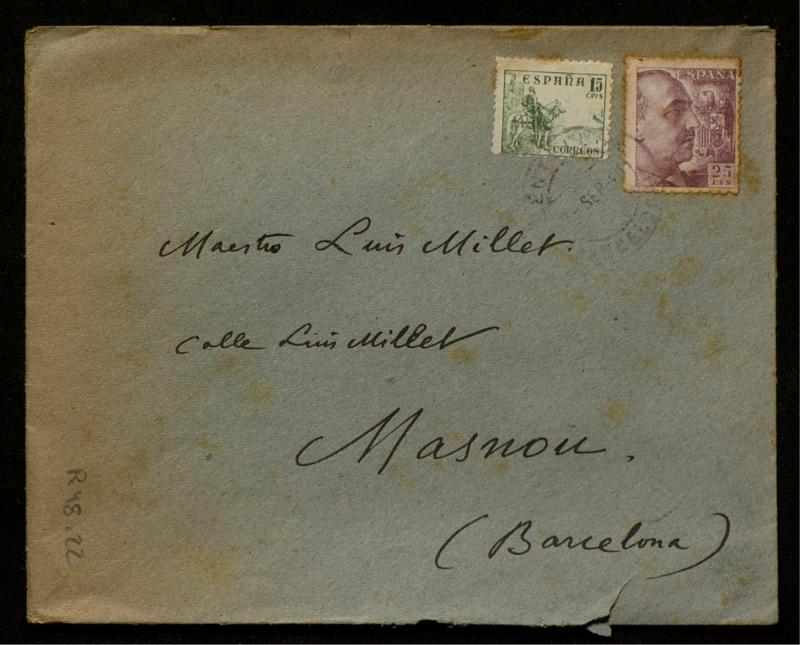 ESPAÑA 15
CTS
CORREOS
ESPAÑA
CORREOS
25
CTS
SEP
Maestro Luis Millet.
Calle Luis Millet
Masnou.
(Barcelona)
R48.22